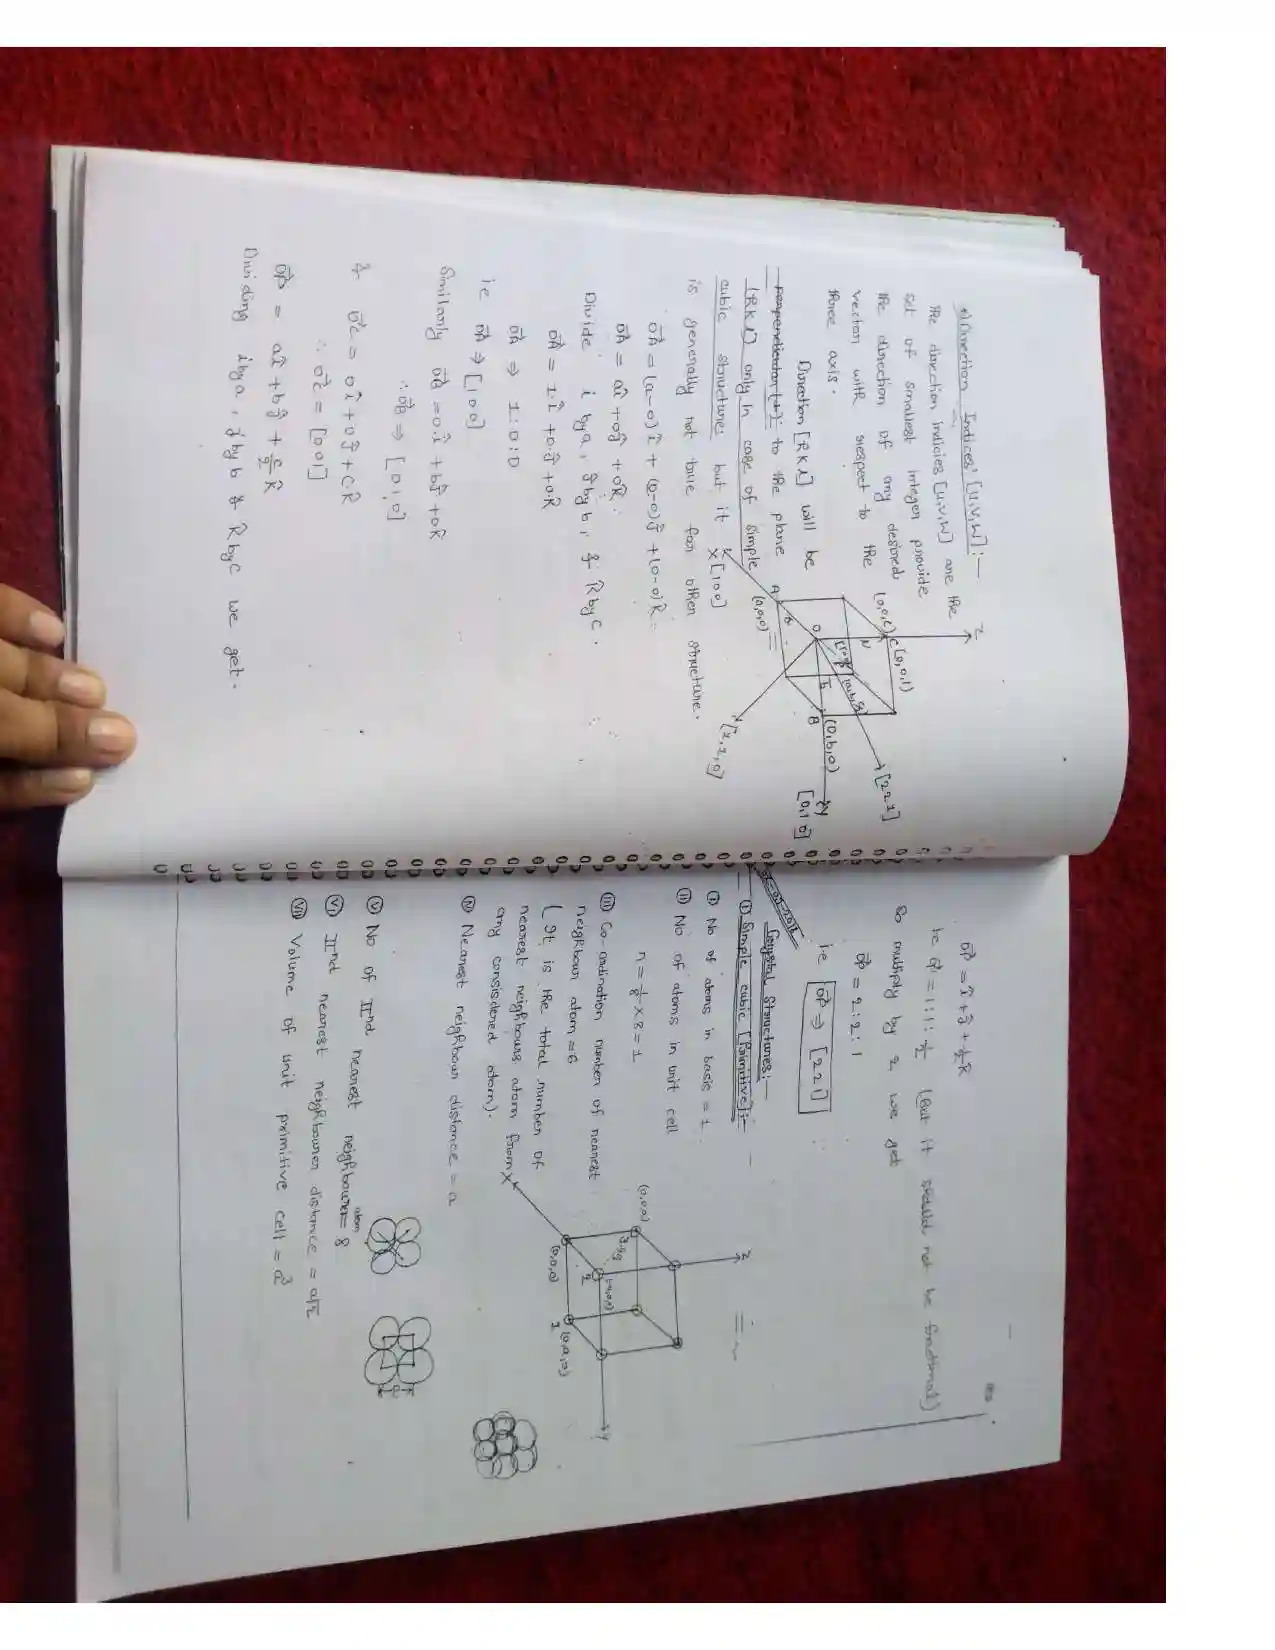 *) Direction Indices' [u,v,w] :-
The direction indicies [u,v,w] are the
set of smallest integer provide
the direction of any desired
vector with respect to the
three axis.
Direction [h k l] will be
perpendicular to the plane
[h k l] only in case of simple
cubic structure; but it
is generally not true for other structure.
OA = (a-0)î + (0-0)ĵ + (0-0)k̂
OA = aî + 0ĵ + 0k̂
Divide i by a, j by b, & k by c.
OA = 1.î + 0.ĵ + 0.k̂
OA ⇒ 1:0:0
ie OA ⇒ [100]
Similarly OB = 0.î + bĵ + 0k̂
∴ OB ⇒ [010]
& OC = 0î + 0ĵ + ck̂
∴ OC = [001]
OP = aî + bĵ + c/2 k̂
Dividing i by a, j by b & k by c we get.
Z
(0,0,c)
C(0,0,1)
N
[221]
O
A
B
(0,b,0)
Y
[010]
X [100]
[2,2,0]
OP = î + ĵ + 1/2 k̂
ie OP = 1:1:1/2 (But it should not be fractional)
So multiply by 2 we get
OP = 2:2:1
ie OP ⇒ [221]
Crystal Structures:-
① Simple cubic [Primitive]:-
Ⓘ No of atoms in basis = 1
Ⓘ Ⓘ No of atoms in unit cell
n = 1/8 × 8 = 1
(III) Co-ordination number of nearest
neighbour atom = 6
(It is the total number of
nearest neighbours atom from
any considered atom).
(IV) Nearest neighbour distance = a
(V) No of IInd nearest neighbourer atom = 8
(VI) IInd nearest neighbourer distance = a√2
(VII) Volume of unit primitive cell = a³
Z
X
Y
(0,a,0)